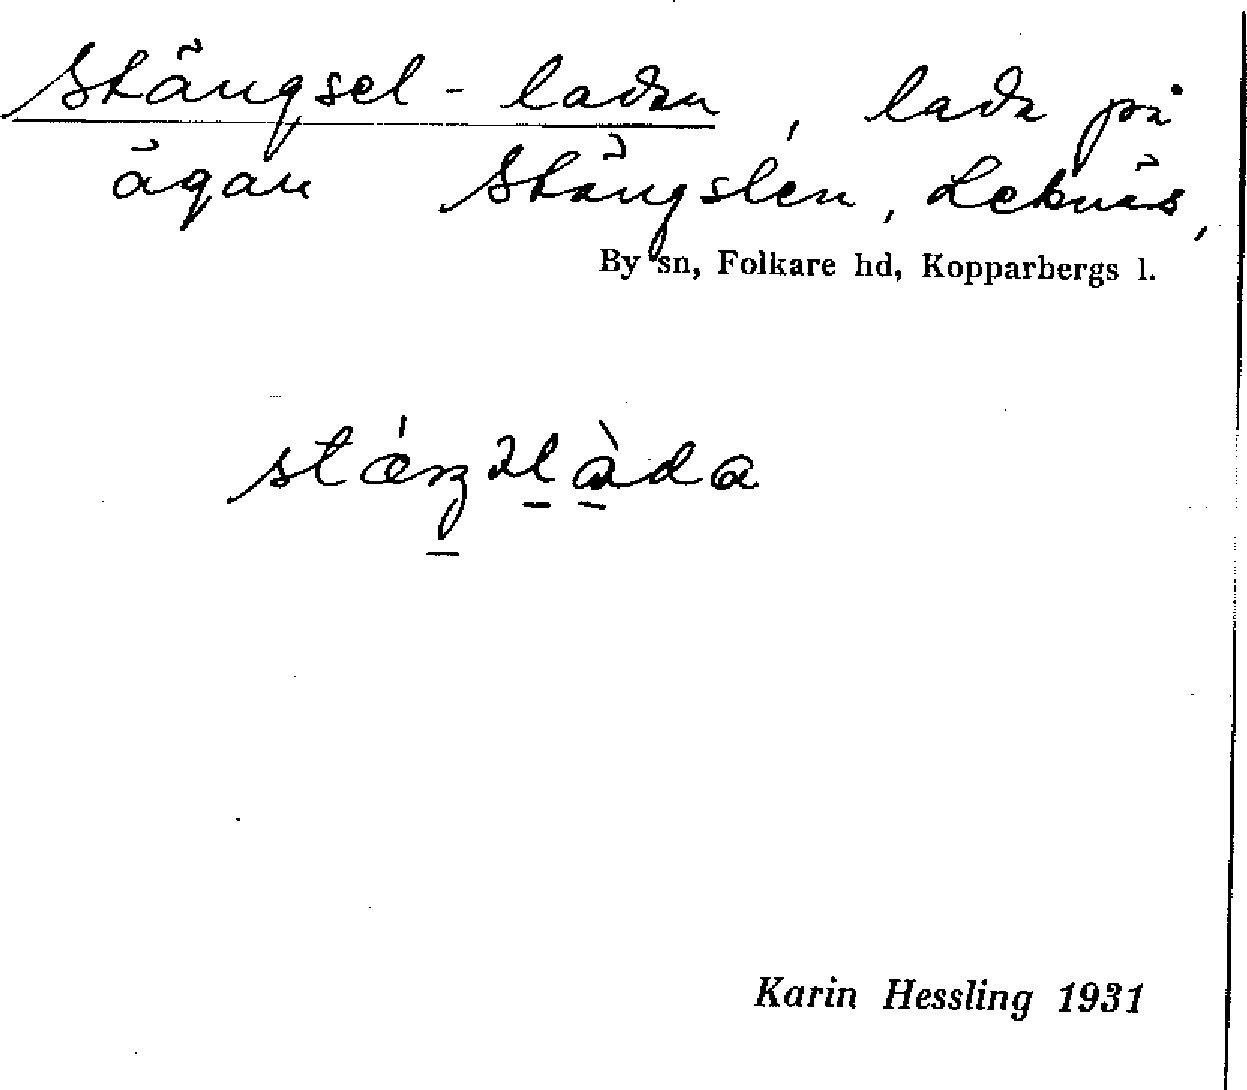 Stängsel-ladan, lada på
ägan Stängslen, Leknäs,
By sn, Folkare hd, Kopparbergs l.
Karin Hessling 1931